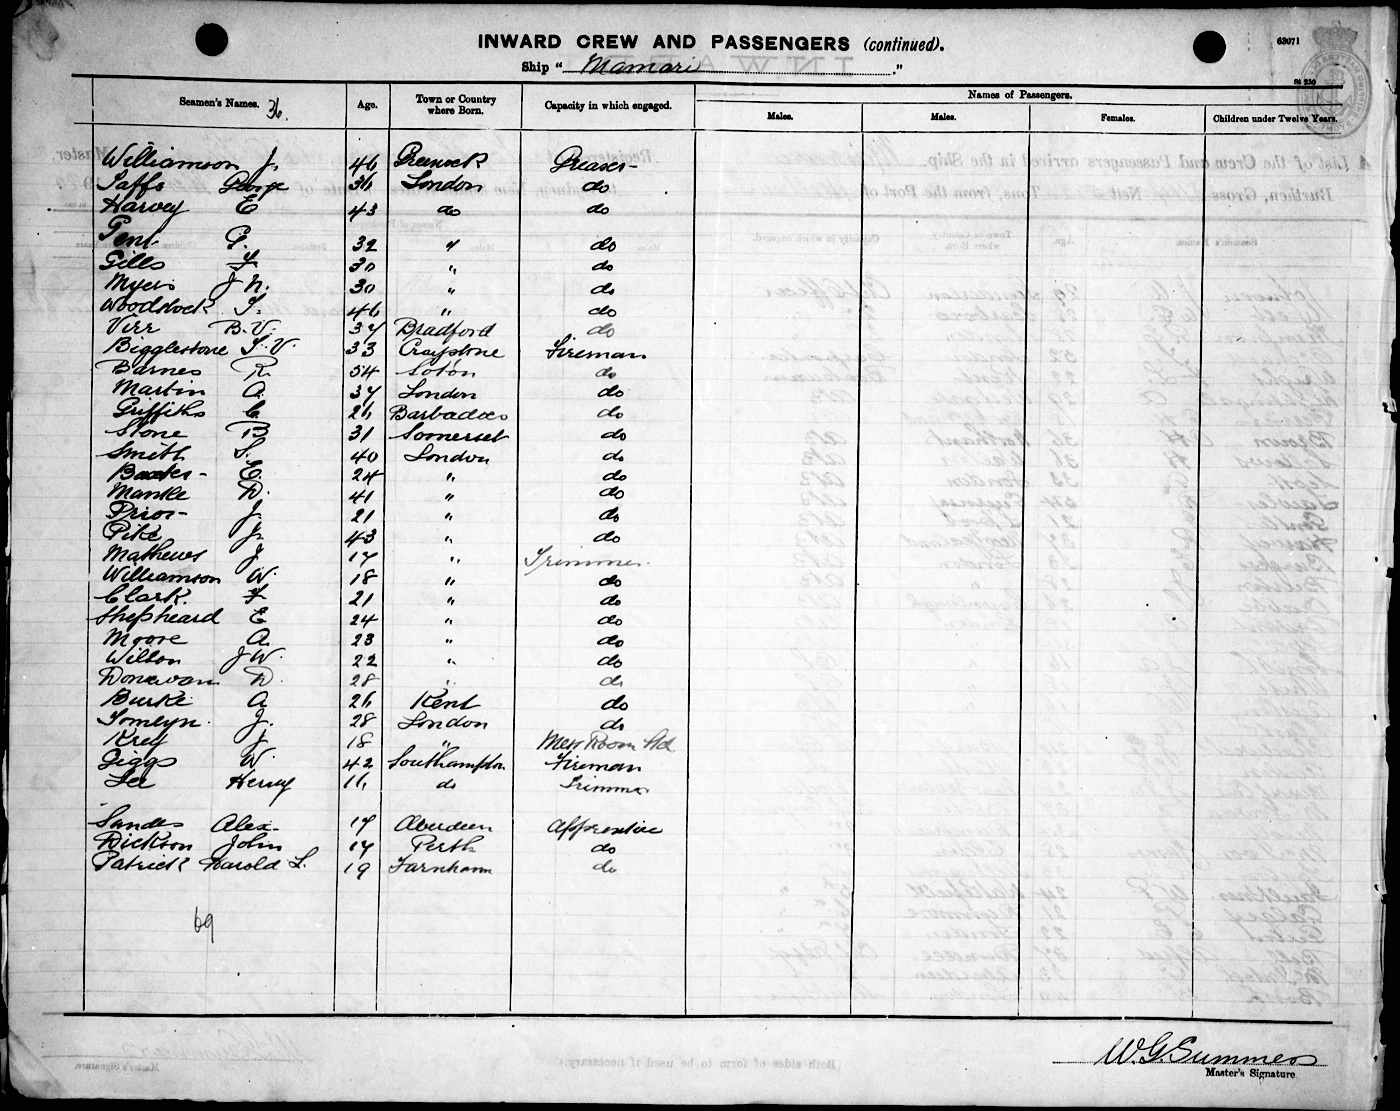 INWARD CREW AND PASSENGERS (continued).
63071
Ship "Mamari"
St 250
Seamen's Names. 36. Age. Town or Country where Born. Capacity in which engaged. Names of Passengers.
Males. Males. Females. Children under Twelve Years.
Williamson J. 46 Greenock Greaser
Saffs George 36 London do
Harvey E 43 do do
Pent P. 32 " do
Gills F 30 " do
Myers J N. 30 " do
Woodstock S. 46 " do
Virr B.V. 37 Bradford do
Bigglestone S.V. 33 Fireman
Barnes R 54 Soton do
Martin A. 37 London do
Griffiths C 26 Barbadoes do
Stone B 31 Somerset do
Smith S. 40 London do
Baxter E. 24 " do
Manke D. 41 " do
Prior J. 21 " do
Pike J. 43 " do
Mathews J 17 " Trimmer.
Williamson W. 18 " do
Clark. F 21 " do
Shepheard E 24 " do
Moore A. 23 " do
Wilton J W. 22 " do
Donavan D. 28 " do
Burke A 26 Kent do
Tomlyn J. 28 London do
Krey J 18 " Mess Room Std
Giggs W. 42 Southampton Fireman
Lee Henry 16 do Trimmer
Sandes Alex. 17 Aberdeen Apprentice
Dickson John 17 Perth do
Patrick Harold L. 19 Farnham do
69
W.G. Summers
Master's Signature